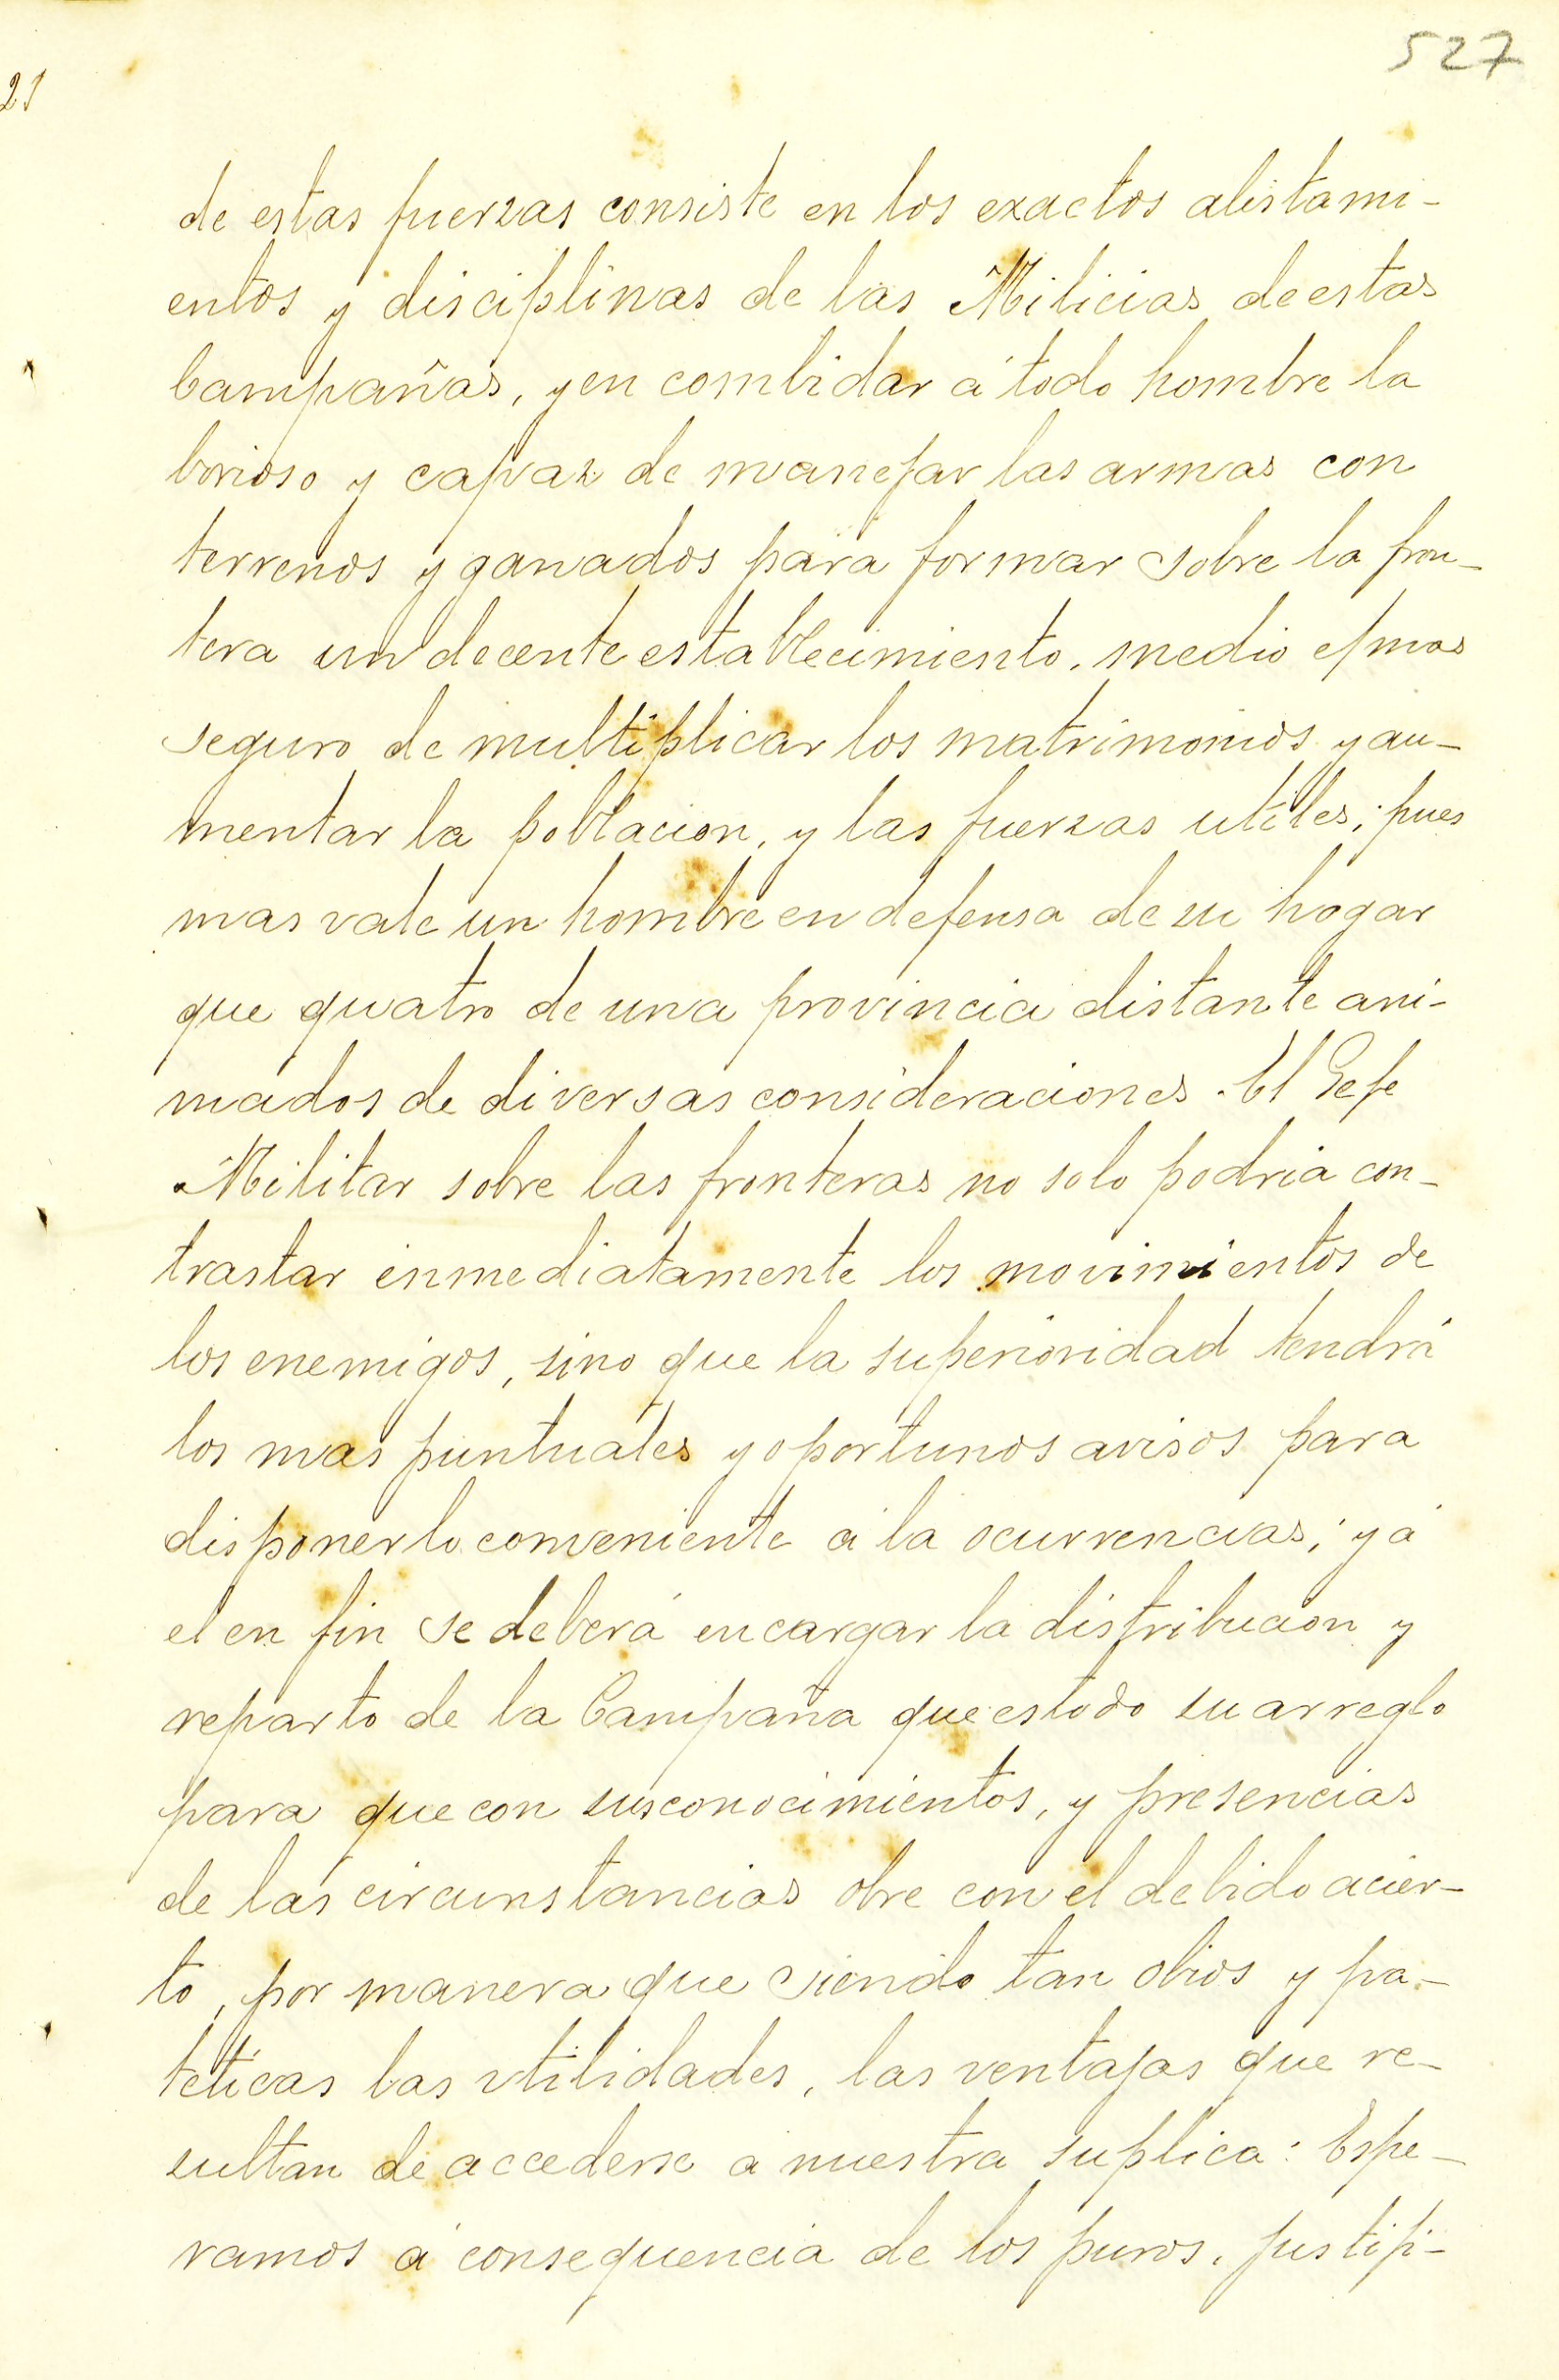 527
21
de estas fuerzas consiste en los exactos alistami-
entos y disciplinas de las Milicias de estas
Campañas, y en combidar á todo hombre la
borioso y capaz de manejar las armas con
terrenos y ganados para formar sobre la fron-
tera un decente establecimiento, medio el mas
seguro de multiplicar los matrimonios y au-
mentar la poblacion, y las fuerzas utiles; pues
mas vale un hombre en defensa de su hogar
que quatro de una provincia distante ani-
mados de diversas consideraciones. El Gefe
Militar sobre las fronteras no solo podria con-
trastar inmediatamente los movimientos de
los enemigos, sino que la superioridad tendrá
los mas puntuales y oportunos avisos para
disponer lo conveniente á la ocurrencias; y á
el en fin se deberá encargar la distribucion y
reparto de la Campaña que es todo su arreglo
para que con sus conocimientos, y presencias
de las circunstancias obre con el debido acier-
to, por manera que siendo tan obios y pa-
teticas las utilidades, las ventajas que re-
sultan de accederse a nuestra suplica: Espe-
ramos á consequencia de los puros, justifi-